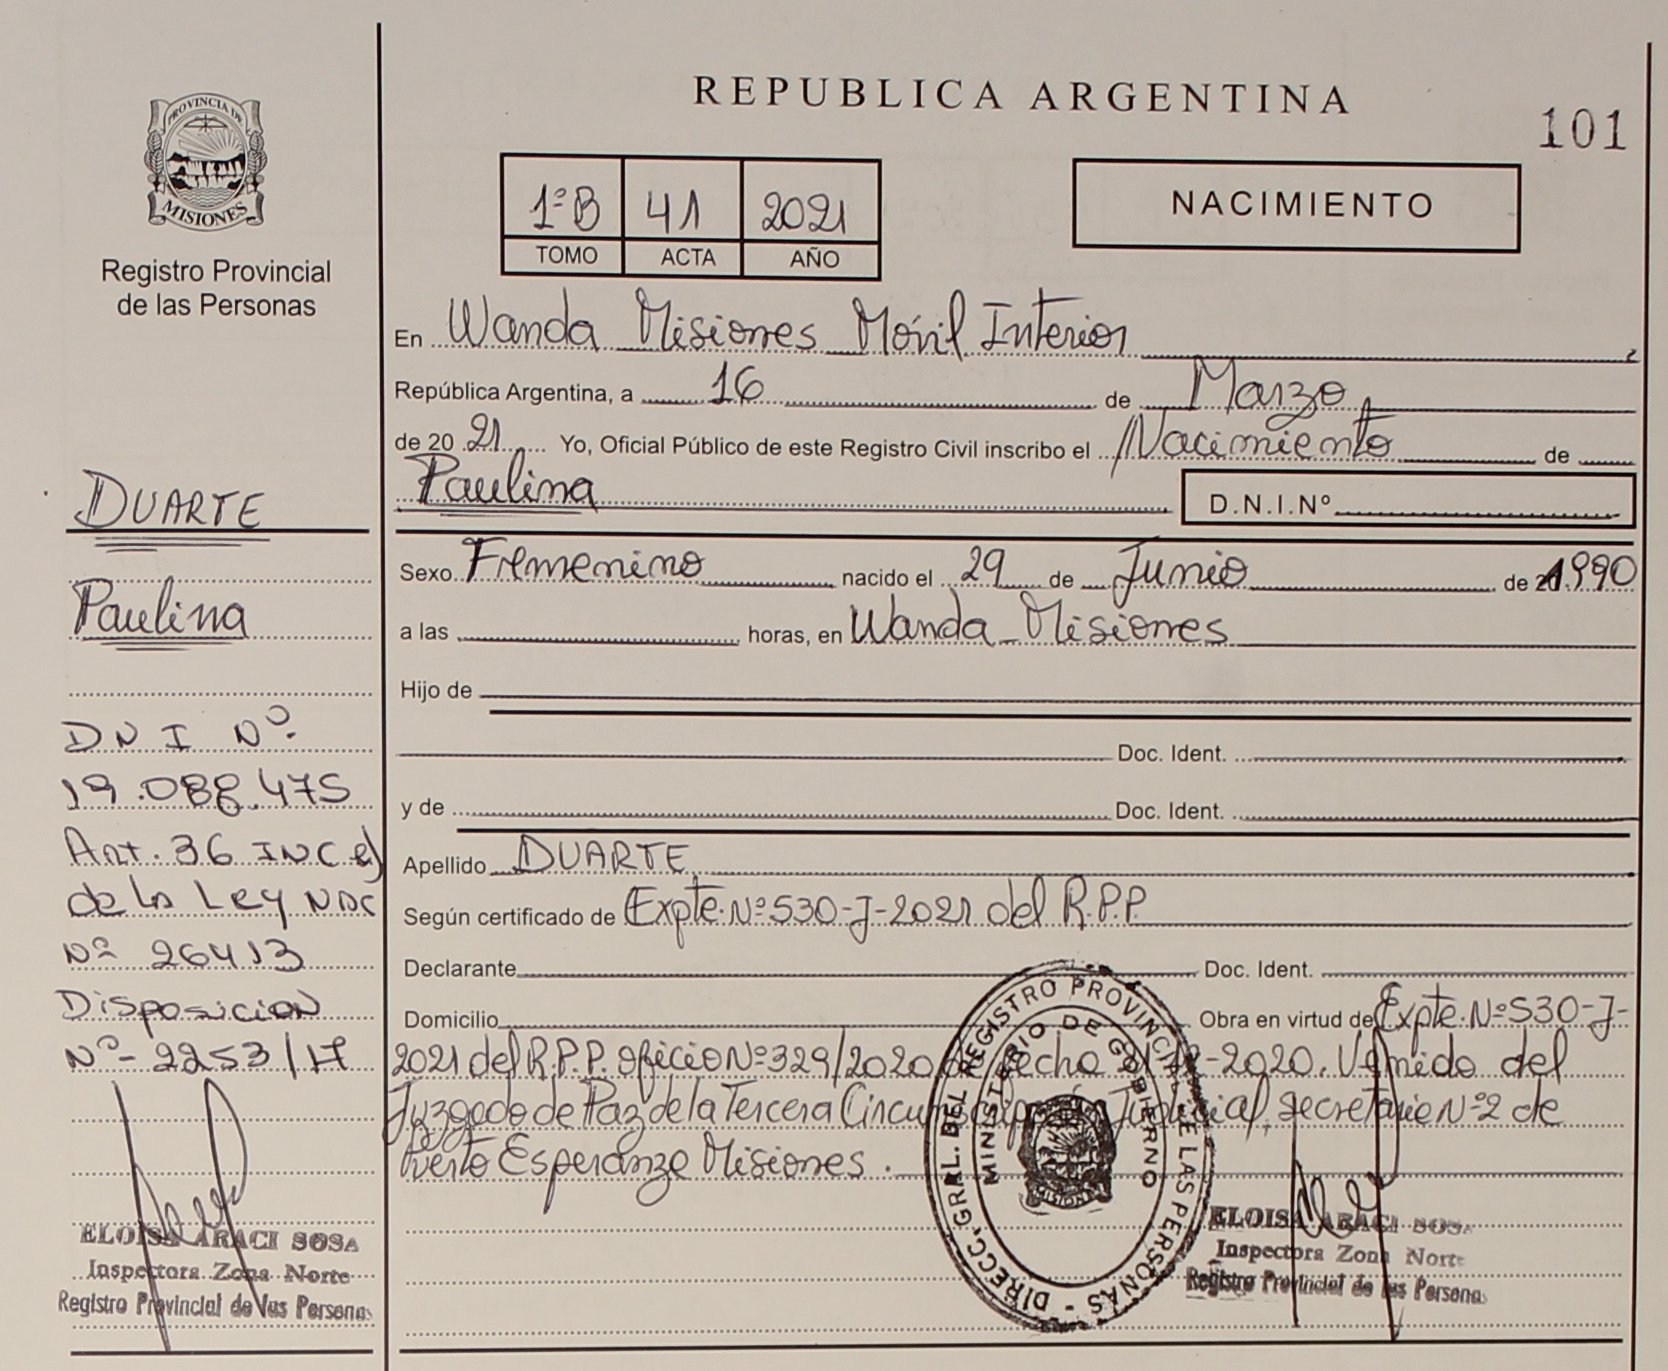 PROVINCIA DE
MISIONES
Registro Provincial
de las Personas
DUARTE
Paulina
DNI Nº
19.088.475
Art. 36 INC e)
de la Ley NAC
Nº 26413
Disposicion
Nº- 2253/17
ELOISA ARACI SOSA
Inspectora Zona Norte
Registro Provincial de las Personas
REPUBLICA ARGENTINA
101
1ºB 41 2021
TOMO ACTA AÑO
NACIMIENTO
En Wanda Misiones Móvil Interior
República Argentina, a 16 de Marzo
de 20 21 Yo, Oficial Público de este Registro Civil inscribo el Nacimiento de
Paulina D.N.I.Nº
Sexo Femenino nacido el 29 de Junio de 1990
a las horas, en Wanda Misiones
Hijo de
Doc. Ident.
y de Doc. Ident.
Apellido DUARTE
Según certificado de Expte. Nº 530-J-2021 del R.P.P.
Declarante Doc. Ident.
Domicilio Obra en virtud de Expte. Nº 530-J-
2021 del R.P.P. oficio Nº 329/2020 de fecha -2020. Venido del
Juzgado de Paz de la Tercera Circunscripción Judicial, secretaria Nº2 de
Puerto Esperanza Misiones.
DIRECC. GRAL. DEL REGISTRO PROVINCIAL DE LAS PERSONAS -
MINISTERIO DE GOBIERNO
ELOISA ARACI SOSA
Inspectora Zona Norte
Registro Provincial de las Personas